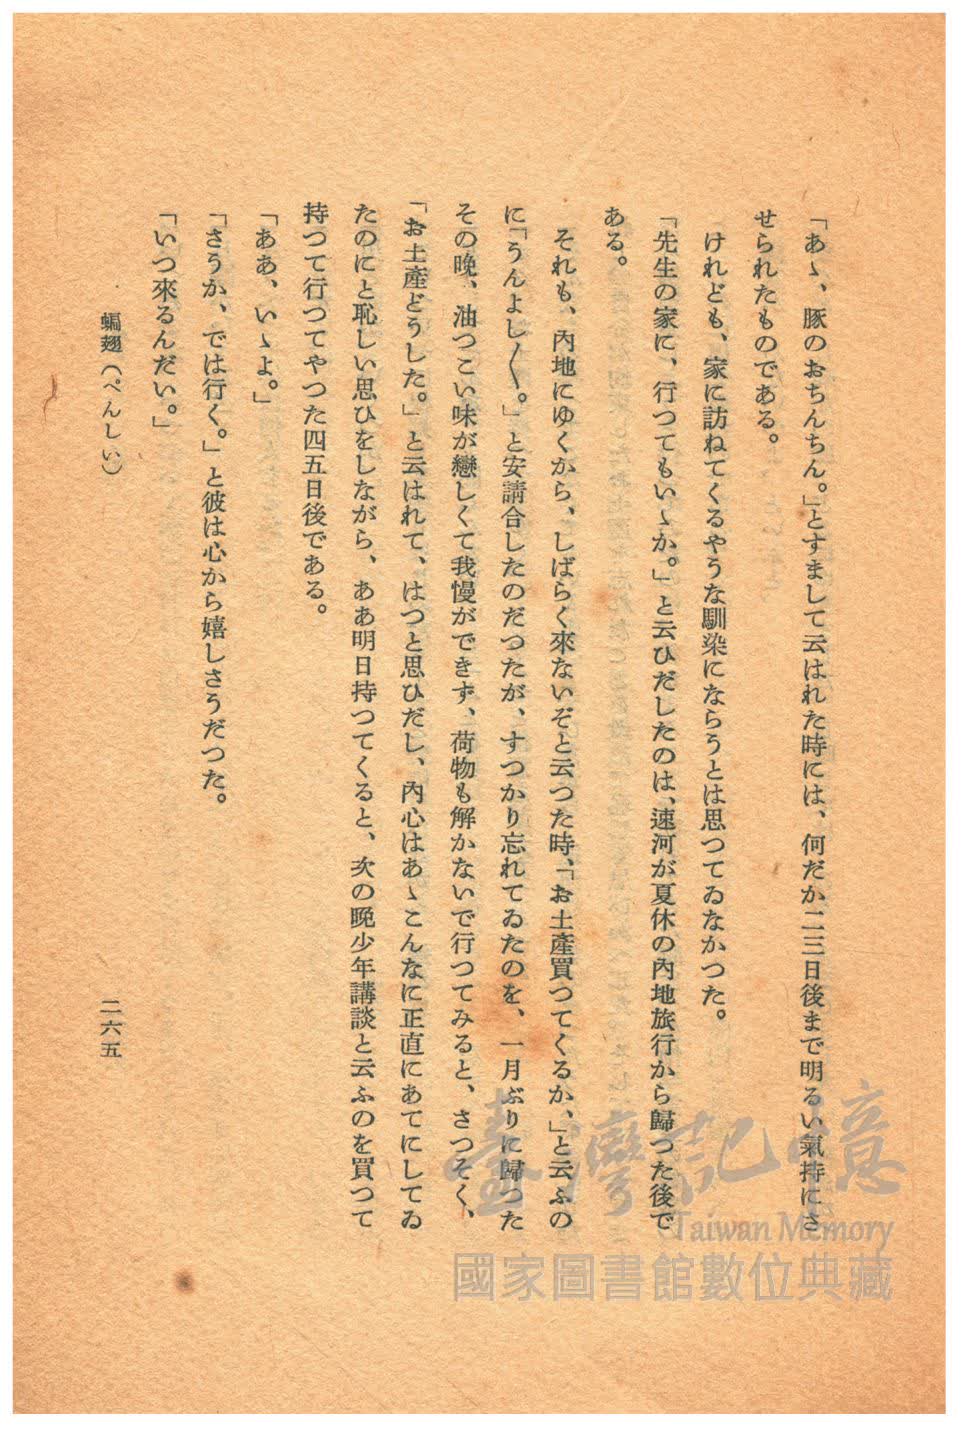 「あゝ、豚のおちんちん。」とすまして云はれた時には、何だか二三日後まで明るい氣持にさ
せられたものである。
けれども、家に訪ねてくるやうな馴染にならうとは思つてゐなかつた。
「先生の家に、行つてもいゝか。」と云ひだしたのは、速河が夏休の內地旅行から歸つた後で
ある。
それも、內地にゆくから、しばらく來ないぞと云つた時、「お土產買つてくるか、」と云ふの
に「うんよし〳〵。」と安請合したのだつたが、すつかり忘れてゐたのを、一月ぶりに歸つた
その晚、油つこい味が戀しくて我慢ができず、荷物も解かないで行つてみると、さつそく、
「お土產どうした。」と云はれて、はつと思ひだし、內心はあゝこんなに正直にあてにしてゐ
たのにと恥しい思ひをしながら、ああ明日持つてくると、次の晚少年講談と云ふのを買つて
持つて行つてやつた四五日後である。
「ああ、いゝよ。」
「さうか、では行く。」と彼は心から嬉しさうだつた。
「いつ來るんだい。」
蝙翅（ぺんしい）
二六五
臺灣記憶
Taiwan Memory
國家圖書館數位典藏